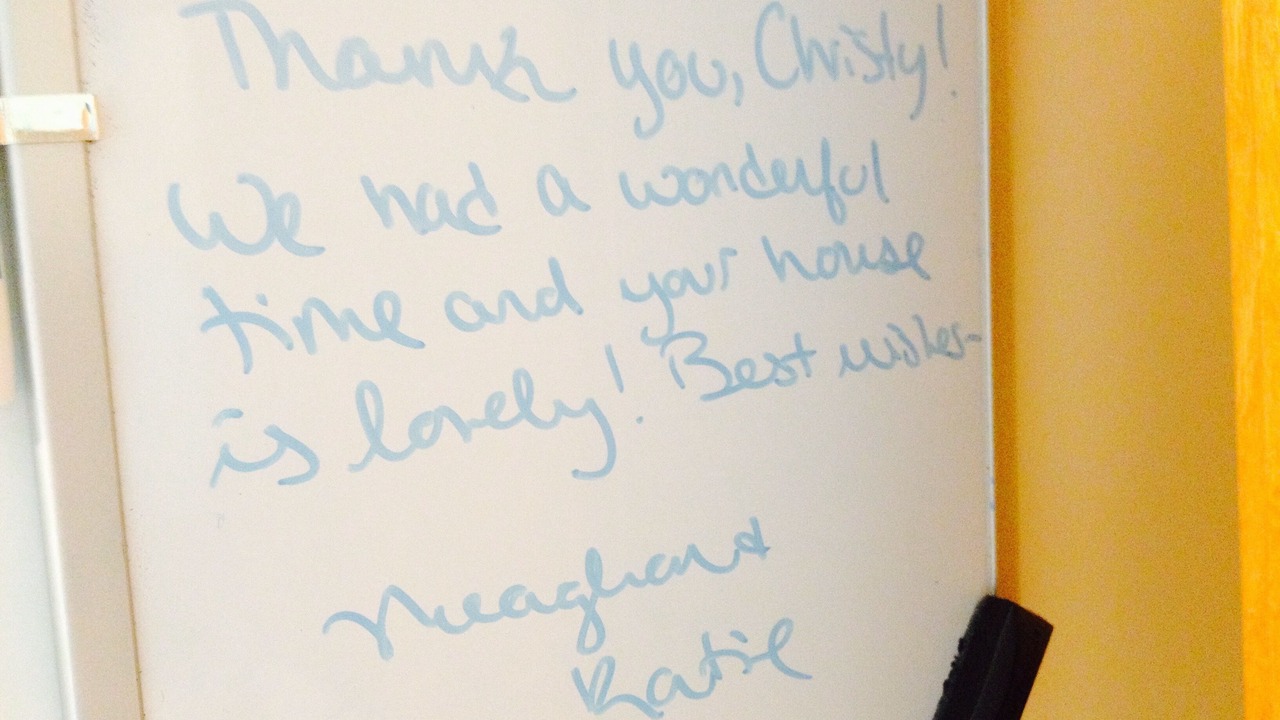 Thank you, Christy!
We had a wonderful
time and your house
is lovely! Best wishes-
Meaghan &
Katie